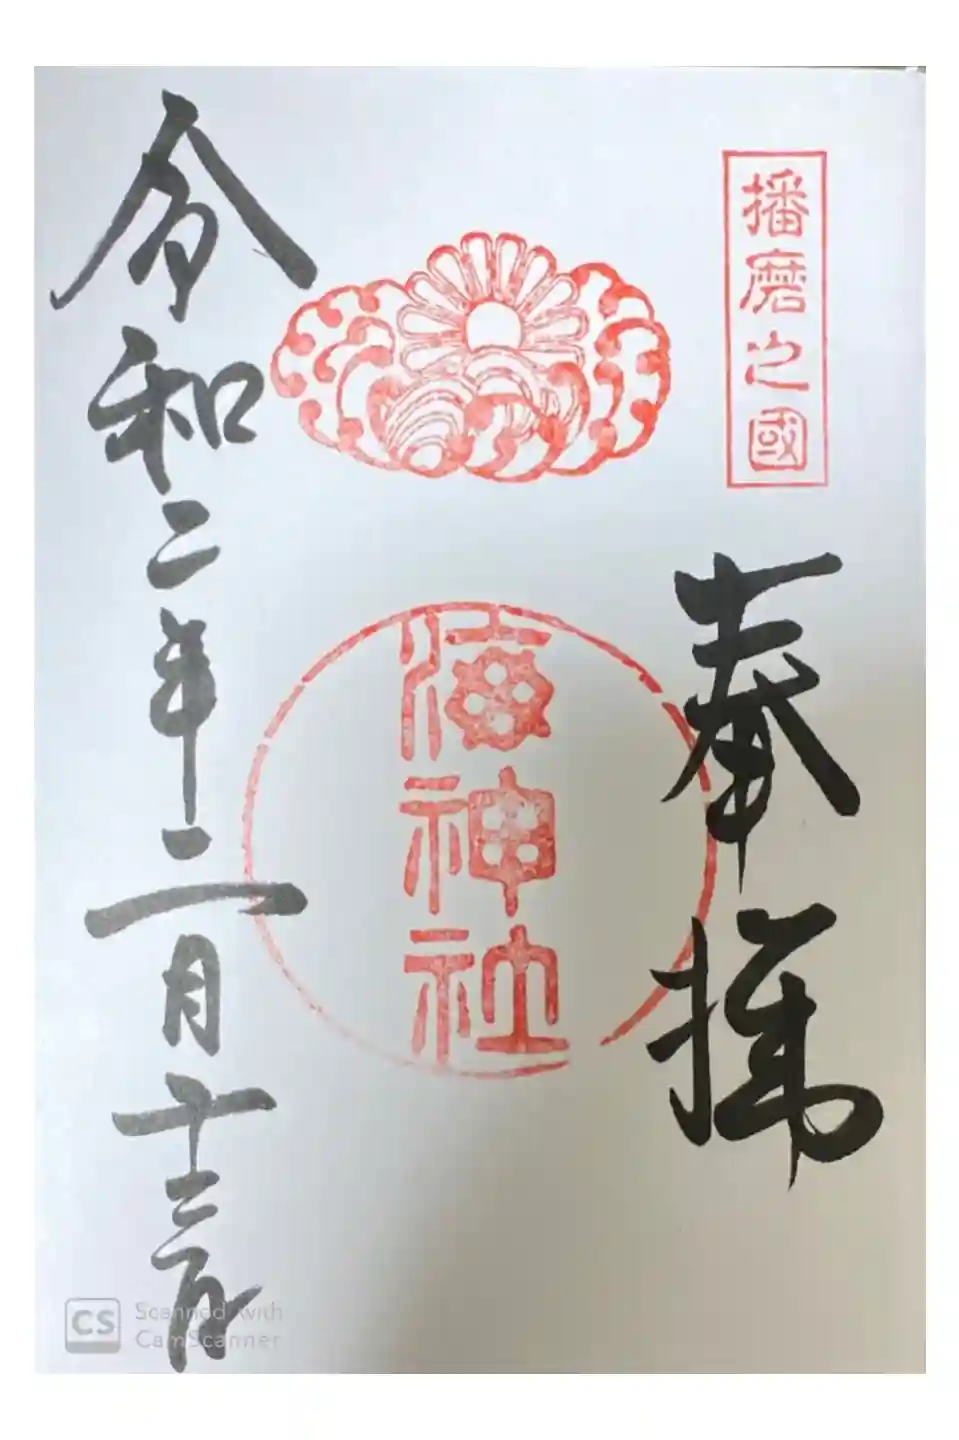 播磨之國
奉拝
海神社
令和二年二月十三日
CS Scanned with
CamScanner